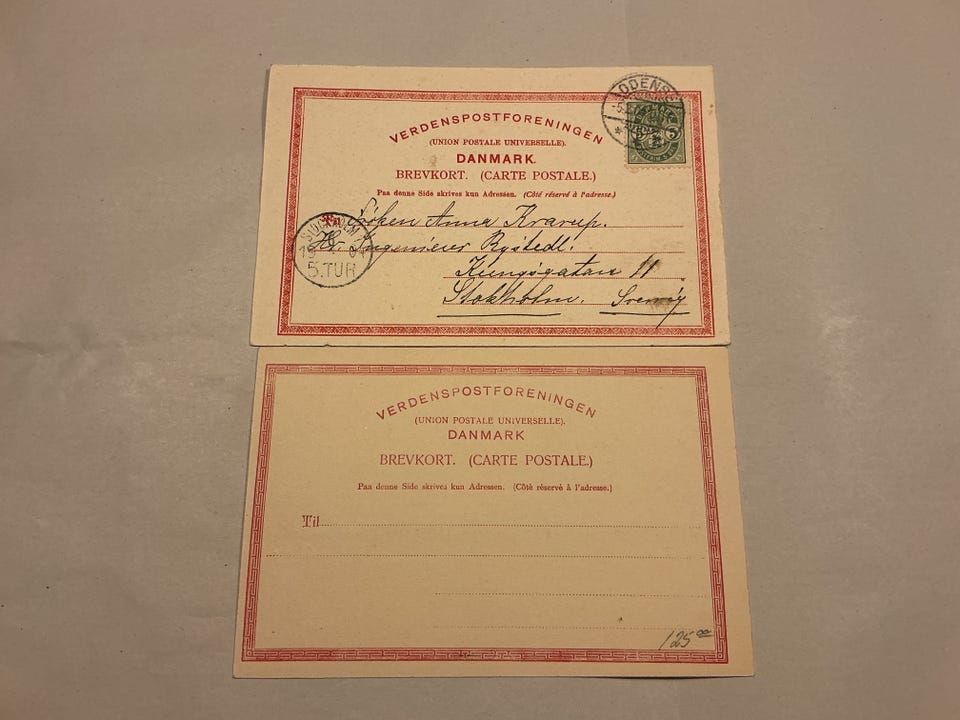 VERDENSPOSTFORENINGEN
(UNION POSTALE UNIVERSELLE).
DANMARK.
BREVKORT. (CARTE POSTALE.)
Paa denne Side skrives kun Adressen. (Côté réservé à l'adresse.)
ODENSE
STOCKHOLM
5.TUR
Frøken Anna Krarup.
Hr. Ingeniør Rystedt.
Kungsgatan 11
Stokholm. Sverrig
VERDENSPOSTFORENINGEN
(UNION POSTALE UNIVERSELLE).
DANMARK
BREVKORT. (CARTE POSTALE.)
Paa denne Side skrives kun Adressen. (Côté réservé à l'adresse.)
Til
125 00